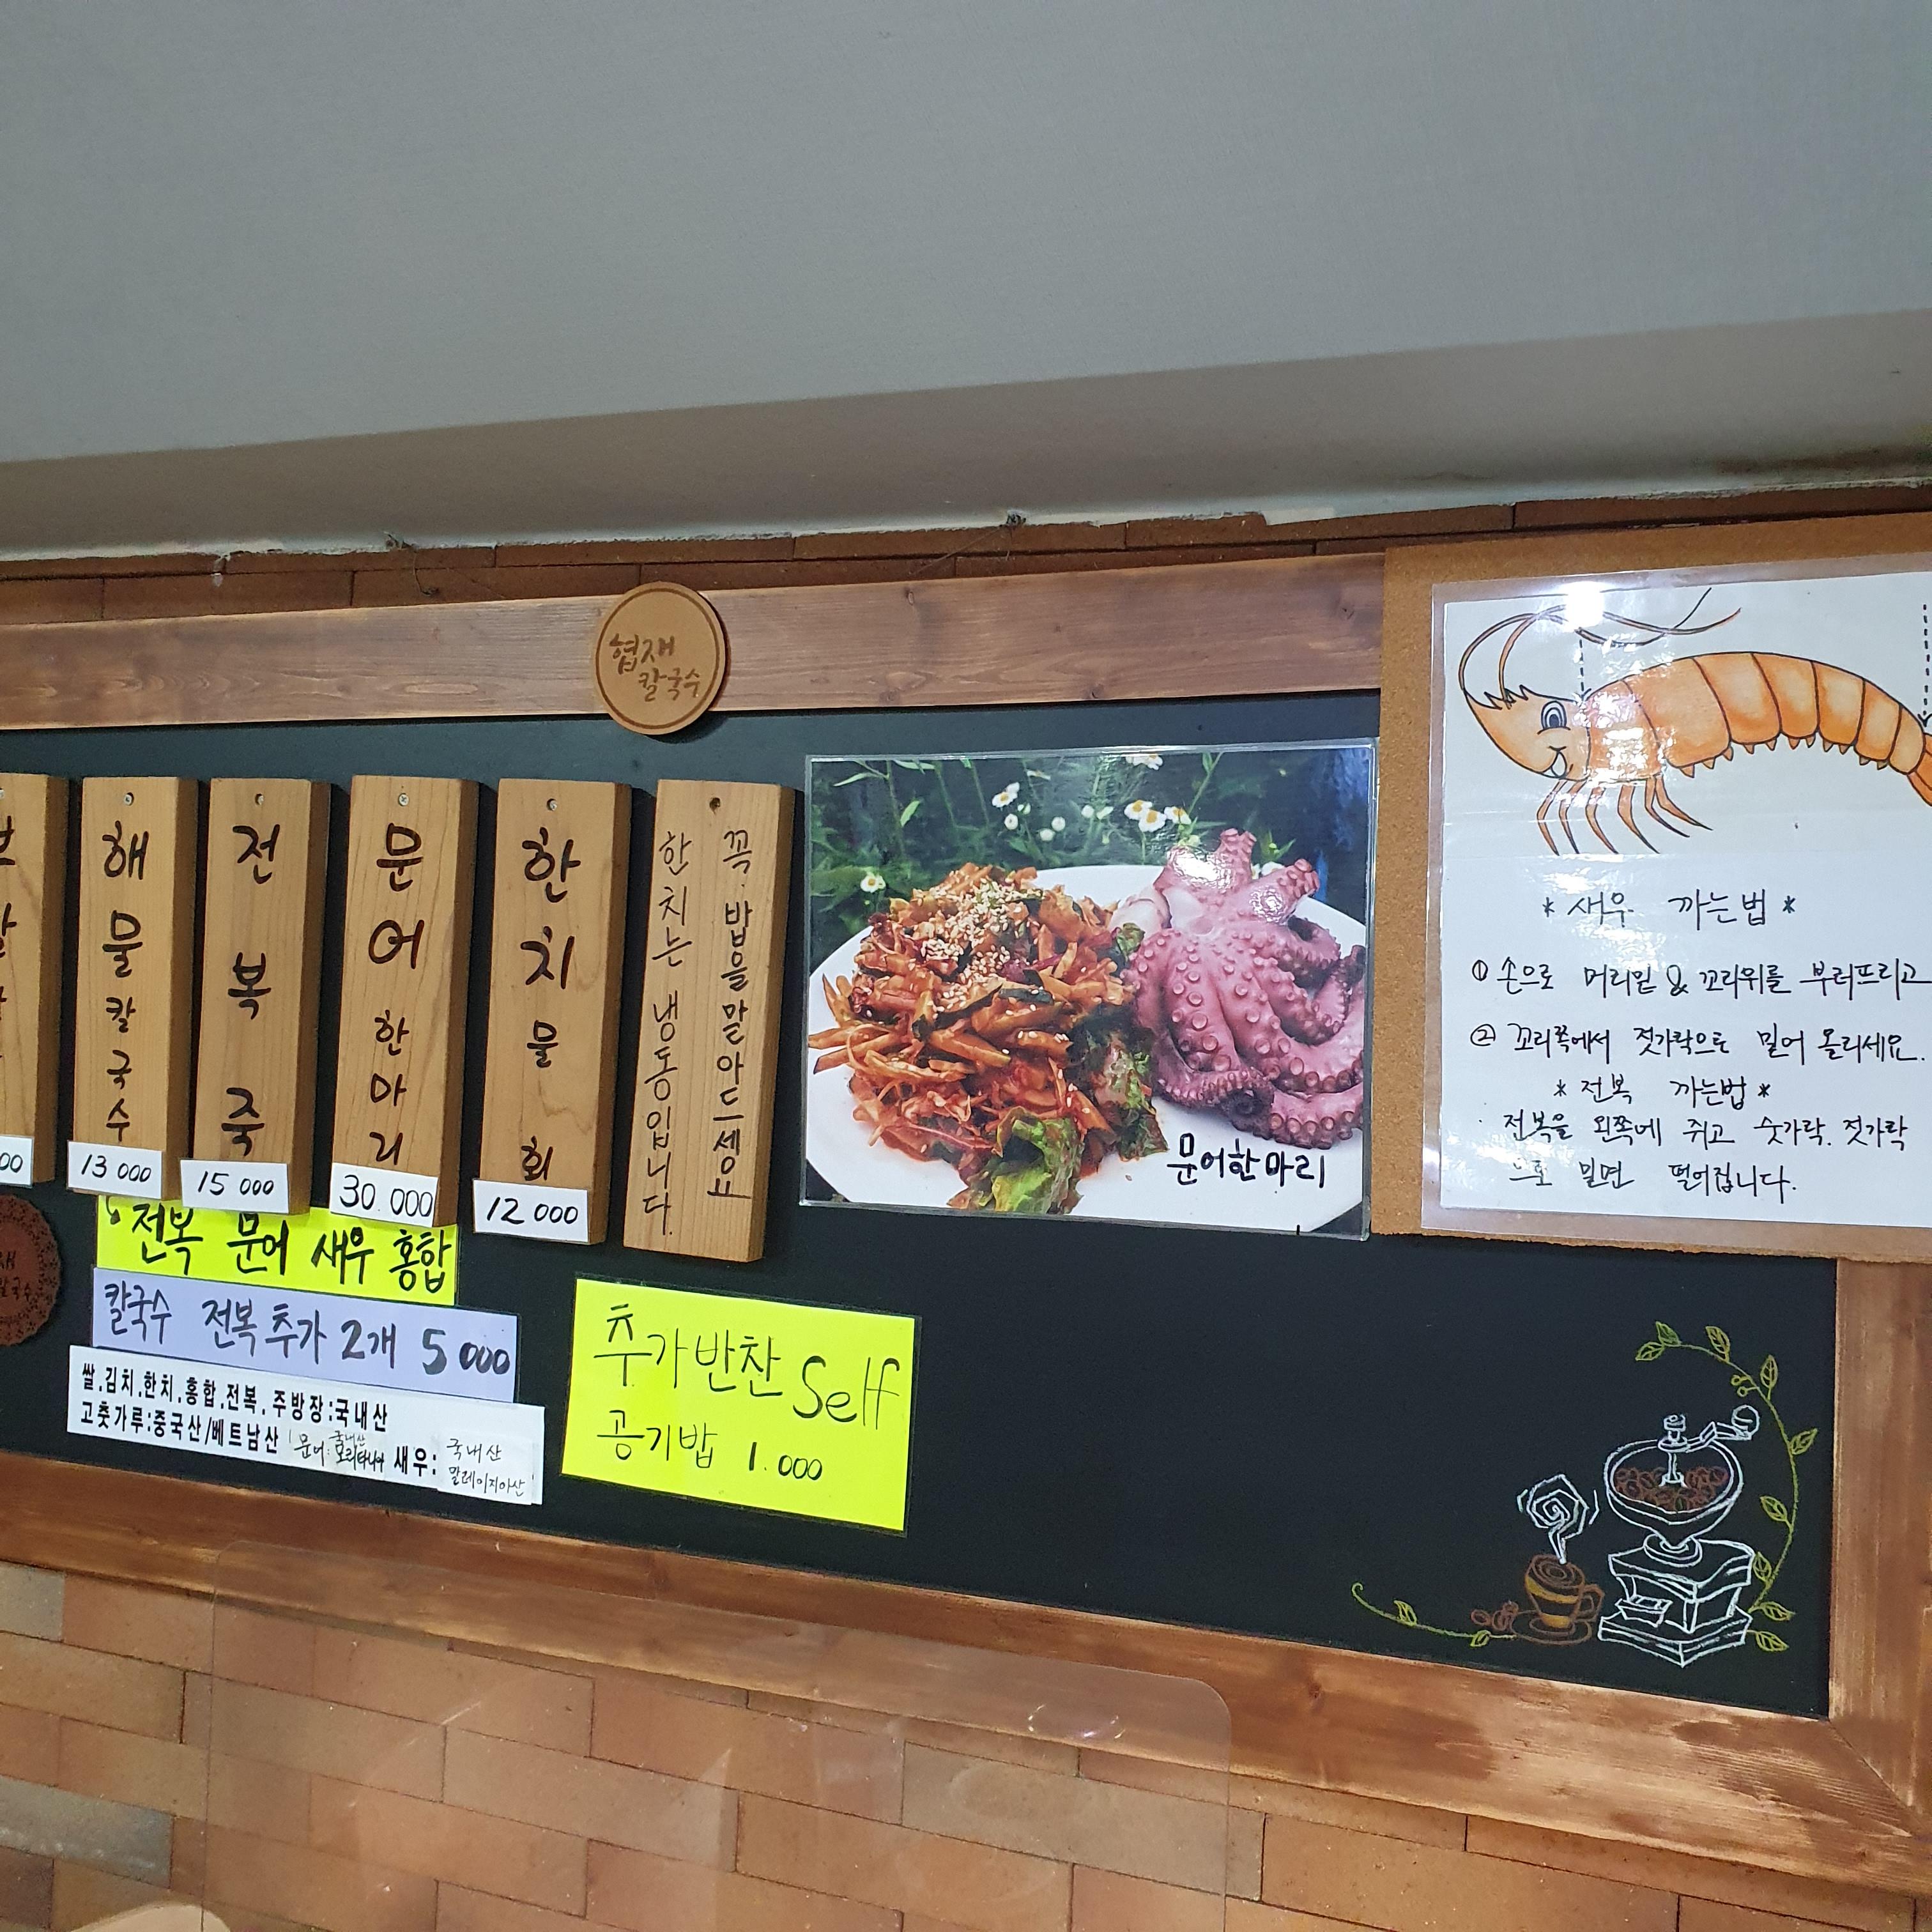 협재
칼국수
해물칼국수
13 000
전복죽
15 000
문어한마리
30.000
한치물회
12 000
꼭.밥을말아드세요
한치는 냉동입니다.
전복 문어 새우 홍합
칼국수 전복추가 2개 5000
쌀.김치.한치.홍합.전복.주방장:국내산
고춧가루:중국산/베트남산 문어: 국내산 모리타니아 새우: 국내산 말레이지아산
추가반찬 Self
공기밥 1.000
문어한마리
* 새우 까는법 *
① 손으로 머리밑 & 꼬리위를 부러뜨리고
② 꼬리쪽에서 젓가락으로 밀어 올리세요.
* 전복 까는법 *
전복을 왼쪽에 쥐고 숫가락.젓가락
으로 밀면 떨어집니다.